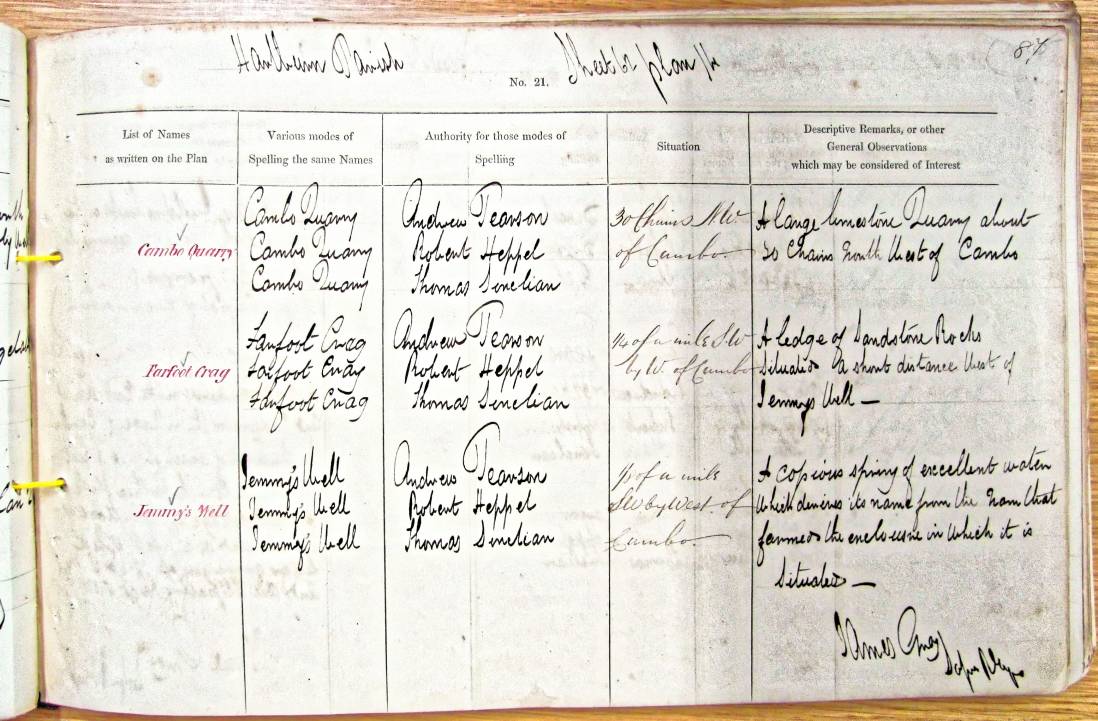 Hartburn Parish Sheet 62 plan 14
87
No. 21.
List of Names
as written on the Plan
Various modes of
Spelling the same Names
Authority for those modes of
Spelling
Situation
Descriptive Remarks, or other
General Observations
which may be considered of Interest
Cambo Quarry
Cambo Quarry
Cambo Quarry
Cambo Quarry
Andrew Pearson
Robert Heppel
Thomas Sinclian
30 Chains NW
of Cambo.
A large limestone Quarry about
30 Chains North West of Cambo
Farfoot Crag
Farfoot Crag
Farfoot Crag
Farfoot Crag
Andrew Pearson
Robert Heppel
Thomas Sinclian
1/4 of a mile SW
by W. of Cambo
A ledge of Sandstone Rocks
Situated a short distance West of
Jemmys Well —
Jemmy's Well
Jemmy's Well
Jemmy's Well
Jemmy's Well
Andrew Pearson
Robert Heppel
Thomas Sinclian
of a mile
SW by West of
Cambo
A copious spring of excellent water
Which derives its name from the man that
farmed the enclosure in Which it is
Situated —
James